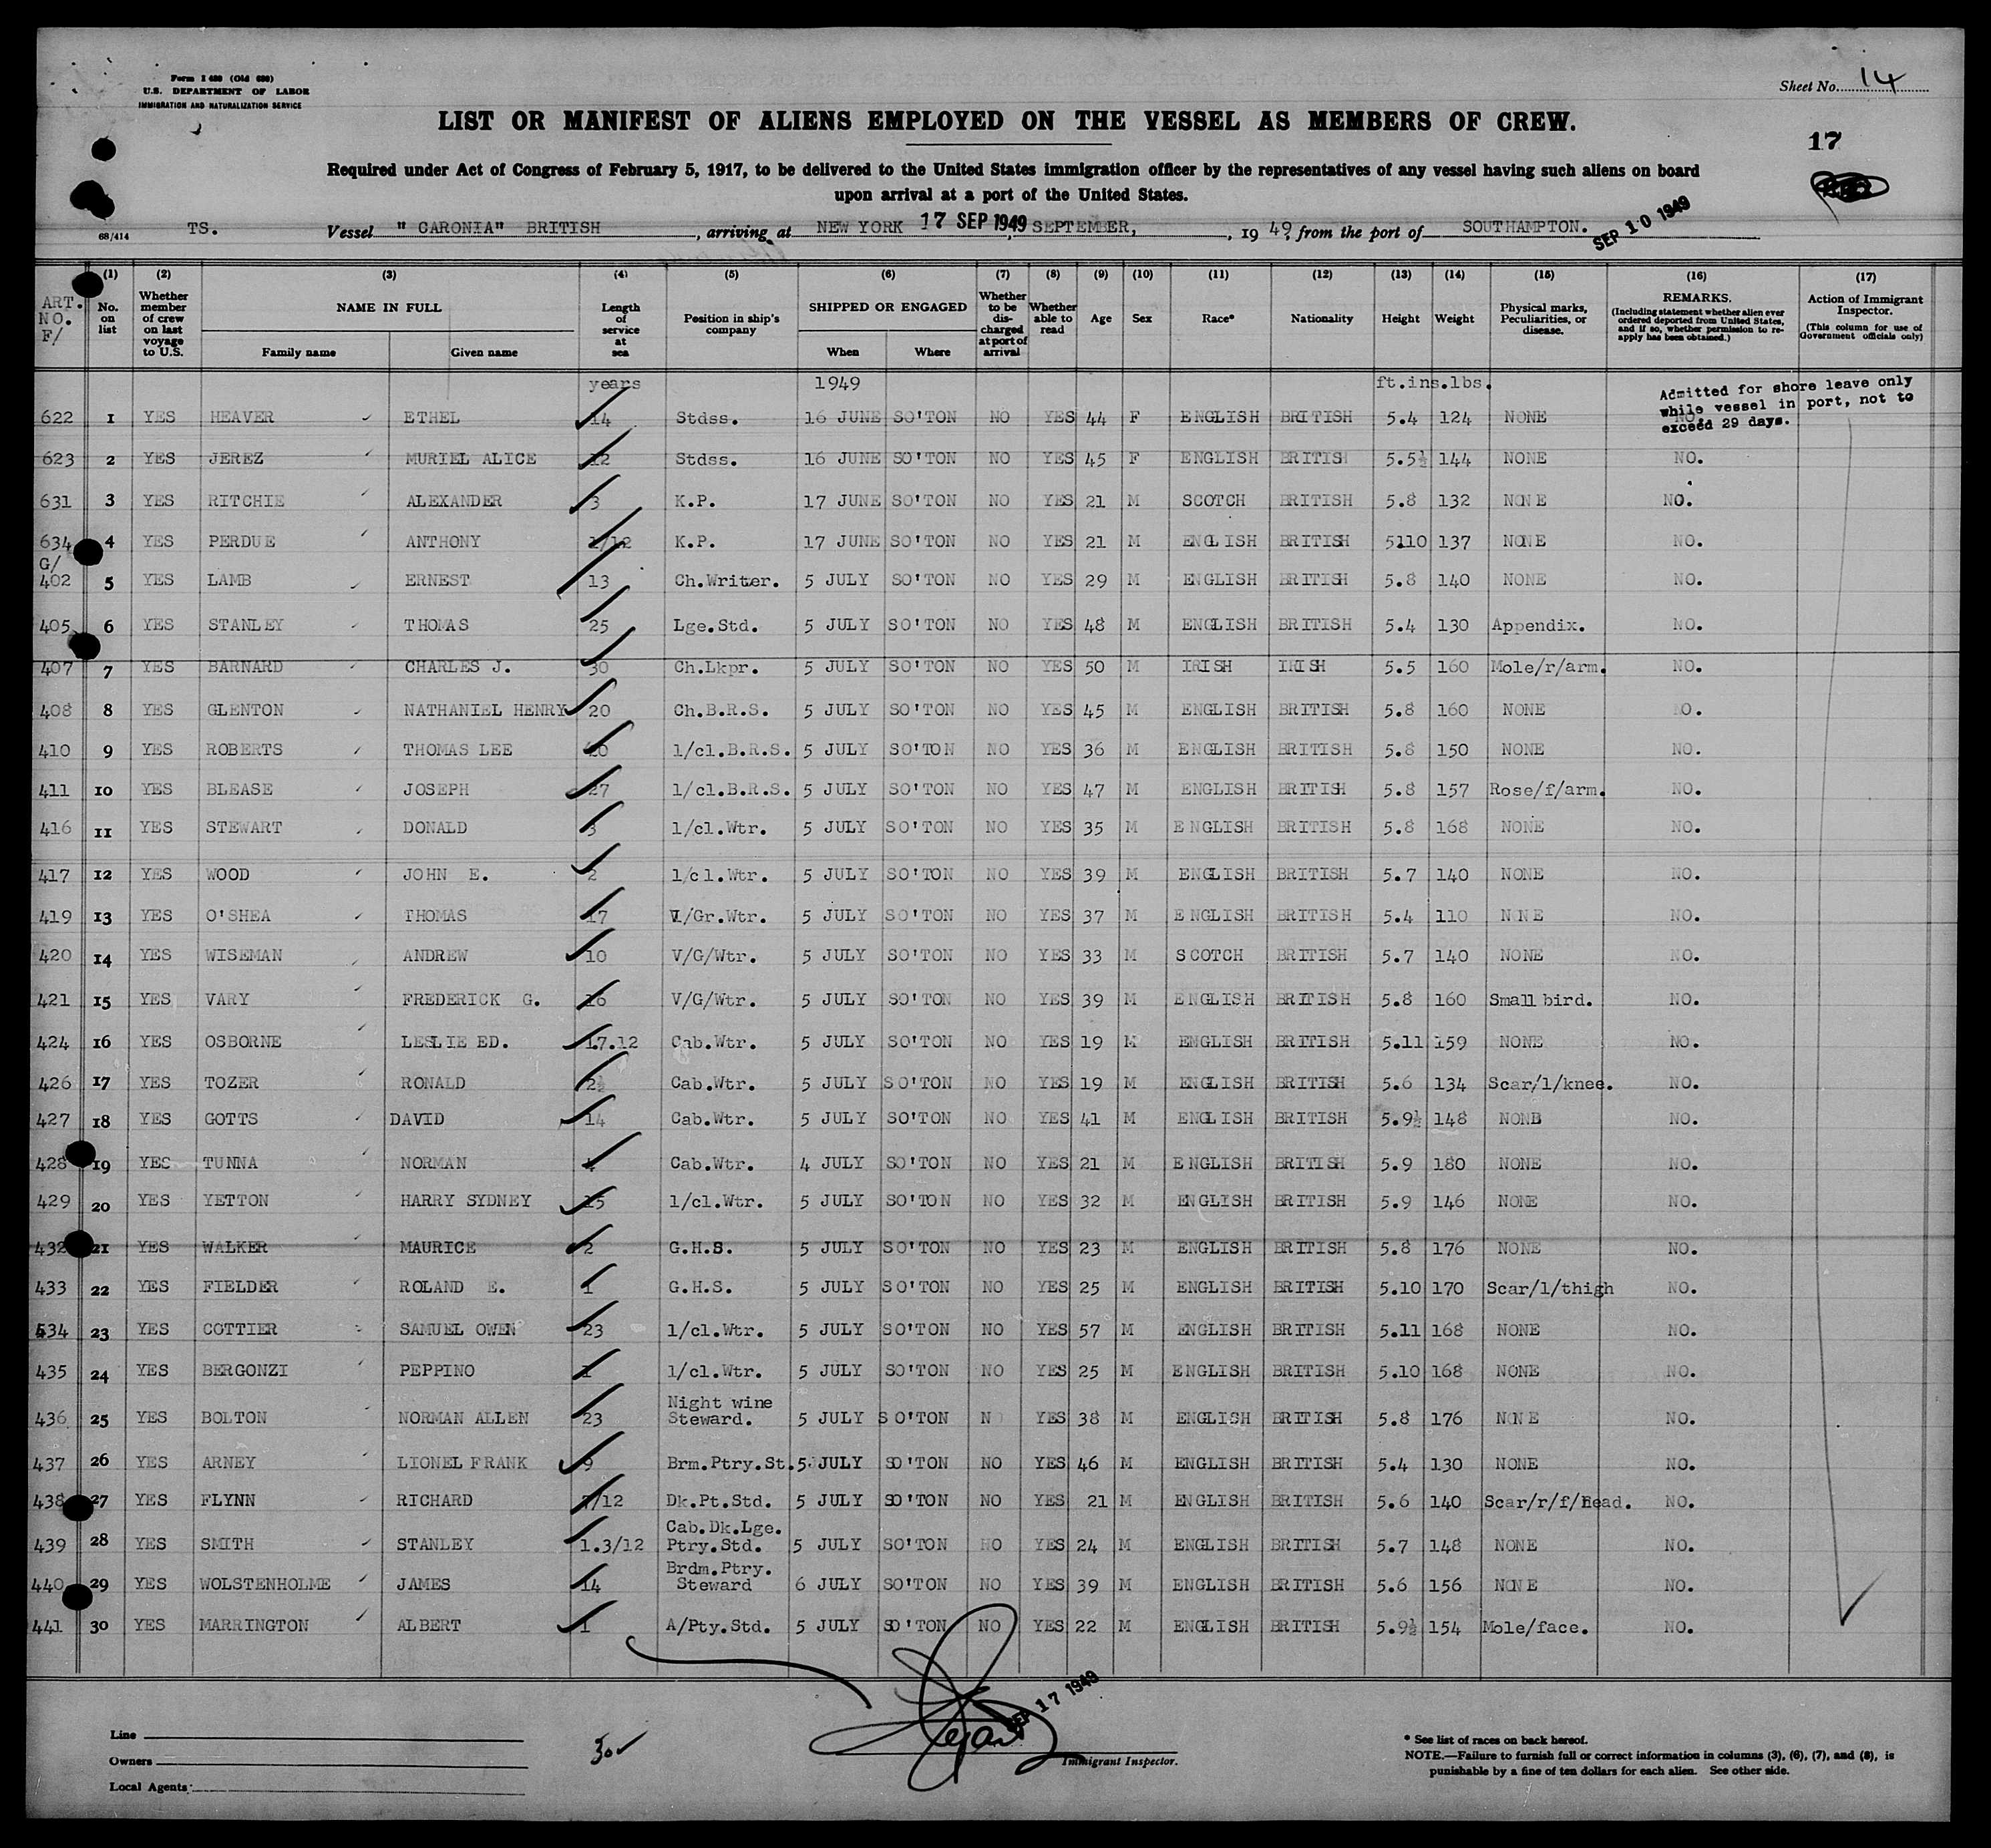 Form I 489 (Old 689)
U.S. DEPARTMENT OF LABOR
IMMIGRATION AND NATURALIZATION SERVICE
Sheet No. 14
LIST OR MANIFEST OF ALIENS EMPLOYED ON THE VESSEL AS MEMBERS OF CREW.
17
Required under Act of Congress of February 5, 1917, to be delivered to the United States immigration officer by the representatives of any vessel having such aliens on board
upon arrival at a port of the United States.
68/414 TS. Vessel " CARONIA" BRITISH, arriving at NEW YORK 17 SEP 1949 SEPTEMBER, , 19 49, from the port of SOUTHAMPTON. SEP 10 1949
(1) (2) (3) (4) (5) (6) (7) (8) (9) (10) (11) (12) (13) (14) (15) (16) (17)
ART. NO. F/ No. on list Whether member of crew on last voyage to U.S. NAME IN FULL Family name Given name Length of service at sea Position in ship's company SHIPPED OR ENGAGED When Where Whether to be discharged at port of arrival Whether able to read Age Sex Race* Nationality Height Weight Physical marks, Peculiarities, or disease. REMARKS. (Including statement whether alien ever ordered deported from United States, and if so, whether permission to re-apply has been obtained.) Action of Immigrant Inspector. (This column for use of Government officials only)
years 1949 ft.ins.lbs.
Admitted for shore leave only
while vessel in port, not to
exceed 29 days.
622 1 YES HEAVER ETHEL 14 Stdss. 16 JUNE SO'TON NO YES 44 F ENGLISH BRITISH 5.4 124 NONE NO.
623 2 YES JEREZ MURIEL ALICE 12 Stdss. 16 JUNE SO'TON NO YES 45 F ENGLISH BRITISH 5.5½ 144 NONE NO.
631 3 YES RITCHIE ALEXANDER 3 K.P. 17 JUNE SO'TON NO YES 21 M SCOTCH BRITISH 5.8 132 NONE NO.
634 4 YES PERDUE ANTHONY 1/12 K.P. 17 JUNE SO'TON NO YES 21 M ENGLISH BRITISH 5110 137 NONE NO.
G/
402 5 YES LAMB ERNEST 13 Ch.Writer. 5 JULY SO'TON NO YES 29 M ENGLISH BRITISH 5.8 140 NONE NO.
405 6 YES STANLEY THOMAS 25 Lge.Std. 5 JULY SO'TON NO YES 48 M ENGLISH BRITISH 5.4 130 Appendix. NO.
407 7 YES BARNARD CHARLES J. 30 Ch.Lkpr. 5 JULY SO'TON NO YES 50 M IRISH IRISH 5.5 160 Mole/r/arm. NO.
408 8 YES GLENTON NATHANIEL HENRY 20 Ch.B.R.S. 5 JULY SO'TON NO YES 45 M ENGLISH BRITISH 5.8 160 NONE O.
410 9 YES ROBERTS THOMAS LEE 20 1/cl.B.R.S. 5 JULY SO'TON NO YES 36 M ENGLISH BRITISH 5.8 150 NONE NO.
411 10 YES BLEASE JOSEPH 27 1/cl.B.R.S. 5 JULY SO'TON NO YES 47 M ENGLISH BRITISH 5.8 157 Rose/f/arm. NO.
416 11 YES STEWART DONALD 3 1/cl.Wtr. 5 JULY SO'TON NO YES 35 M ENGLISH BRITISH 5.8 168 NONE NO.
417 12 YES WOOD JOHN E. 2 1/cl.Wtr. 5 JULY SO'TON NO YES 39 M ENGLISH BRITISH 5.7 140 NONE NO.
419 13 YES O'SHEA THOMAS 17 V/Gr.Wtr. 5 JULY SO'TON NO YES 37 M ENGLISH BRITISH 5.4 110 NONE NO.
420 14 YES WISEMAN ANDREW 10 V/G/Wtr. 5 JULY SO'TON NO YES 33 M SCOTCH BRITISH 5.7 140 NONE NO.
421 15 YES VARY FREDERICK G. 16 V/G/Wtr. 5 JULY SO'TON NO YES 39 M ENGLISH BRITISH 5.8 160 Small bird. NO.
424 16 YES OSBORNE LESLIE ED. 17.12 Cab.Wtr. 5 JULY SO'TON NO YES 19 M ENGLISH BRITISH 5.11 159 NONE NO.
426 17 YES TOZER RONALD 2½ Cab.Wtr. 5 JULY SO'TON NO YES 19 M ENGLISH BRITISH 5.6 134 Scar/l/knee. NO.
427 18 YES GOTTS DAVID 14 Cab.Wtr. 5 JULY SO'TON NO YES 41 M ENGLISH BRITISH 5.9½ 148 NONB NO.
428 19 YES TUNNA NORMAN 4 Cab.Wtr. 4 JULY SO'TON NO YES 21 M ENGLISH BRITISH 5.9 180 NONE NO.
429 20 YES YETTON HARRY SYDNEY 15 1/cl.Wtr. 5 JULY SO'TON NO YES 32 M ENGLISH BRITISH 5.9 146 NONE NO.
432 21 YES WALKER MAURICE 2 G.H.S. 5 JULY SO'TON NO YES 23 M ENGLISH BRITISH 5.8 176 NONE NO.
433 22 YES FIELDER ROLAND E. 1 G.H.S. 5 JULY SO'TON NO YES 25 M ENGLISH BRITISH 5.10 170 Scar/l/thigh NO.
434 23 YES COTTIER SAMUEL OWEN 23 1/cl.Wtr. 5 JULY SO'TON NO YES 57 M ENGLISH BRITISH 5.11 168 NONE NO.
435 24 YES BERGONZI PEPPINO 1 1/cl.Wtr. 5 JULY SO'TON NO YES 25 M ENGLISH BRITISH 5.10 168 NONE NO.
436 25 YES BOLTON NORMAN ALLEN 23 Night wine Steward. 5 JULY SO'TON N YES 38 M ENGLISH BRITISH 5.8 176 NONE NO.
437 26 YES ARNEY LIONEL FRANK 9 Brm.Ptry.St. 5 JULY SO'TON NO YES 46 M ENGLISH BRITISH 5.4 130 NONE NO.
438 27 YES FLYNN RICHARD 7/12 Dk.Pt.Std. 5 JULY SO'TON NO YES 21 M ENGLISH BRITISH 5.6 140 Scar/r/f/head. NO.
439 28 YES SMITH STANLEY 1.3/12 Cab.Dk.Lge. Ptry.Std. 5 JULY SO'TON NO YES 24 M ENGLISH BRITISH 5.7 148 NONE NO.
440 29 YES WOLSTENHOLME JAMES 14 Brdm.Ptry. Steward 6 JULY SO'TON NO YES 39 M ENGLISH BRITISH 5.6 156 NONE NO.
441 30 YES MARRINGTON ALBERT 1 A/Pty.Std. 5 JULY SO'TON NO YES 22 M ENGLISH BRITISH 5.9½ 154 Mole/face. NO.
SEP 17 1949
Line
Owners
Local Agents
30
Immigrant Inspector.
* See list of races on back hereof.
NOTE.—Failure to furnish full or correct information in columns (3), (6), (7), and (8), is
punishable by a fine of ten dollars for each alien. See other side.